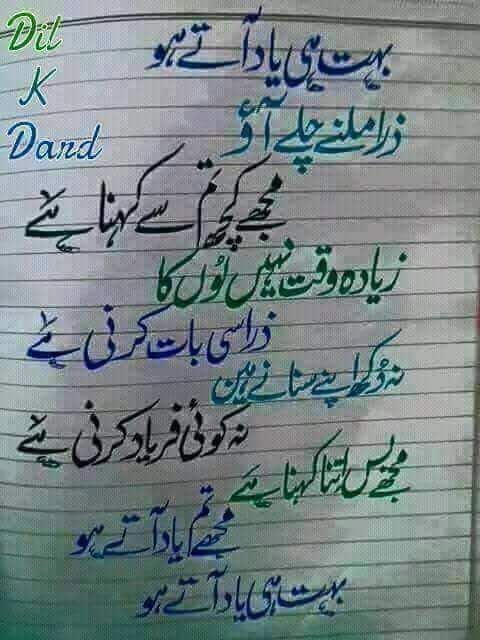 Dil
K
Dard
بہت ہی یاد آتے ہو
ذرا ملنے چلے آؤ
مجھے کچھ تم سے کہنا ہے
زیادہ وقت نہیں لوں گا
ذرا سی بات کرنی ہے
نہ دُکھ اپنے سنانے ہیں
نہ کوئی فریاد کرنی ہے
مجھے بس اتنا کہنا ہے
مجھے تم یاد آتے ہو
بہت ہی یاد آتے ہو